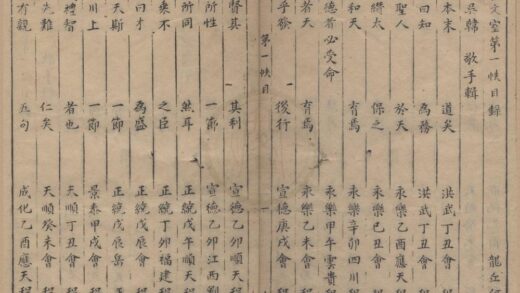 文室第一帙目錄 龍丘
吳韓 敬手輯
本末 道矣 洪武丁丑會
曰知 為務 洪武丁丑會
聖人 於天 永樂乙酉應天
太 保之 永樂己丑會
和天 育焉 永樂辛卯四川
德者必受命 永樂甲午雲貴
若天 育焉 永樂乙未會
乎發 後行 宣德庚戌會
第一帙目 一
督其 其利 宣德乙卯順天程
所性 一節 宣德乙卯江西
所同 然耳 正統戊午順天程
乘不 之臣 正統丁卯福建程
曰才 為盛 正統戊辰會程
天斯 一節 正統戊辰
川上 一節 景泰甲戌會程
禮智 者也 天順丁丑會程
先難 仁矣 天順癸未會
有觀 五句 成化乙酉應天程